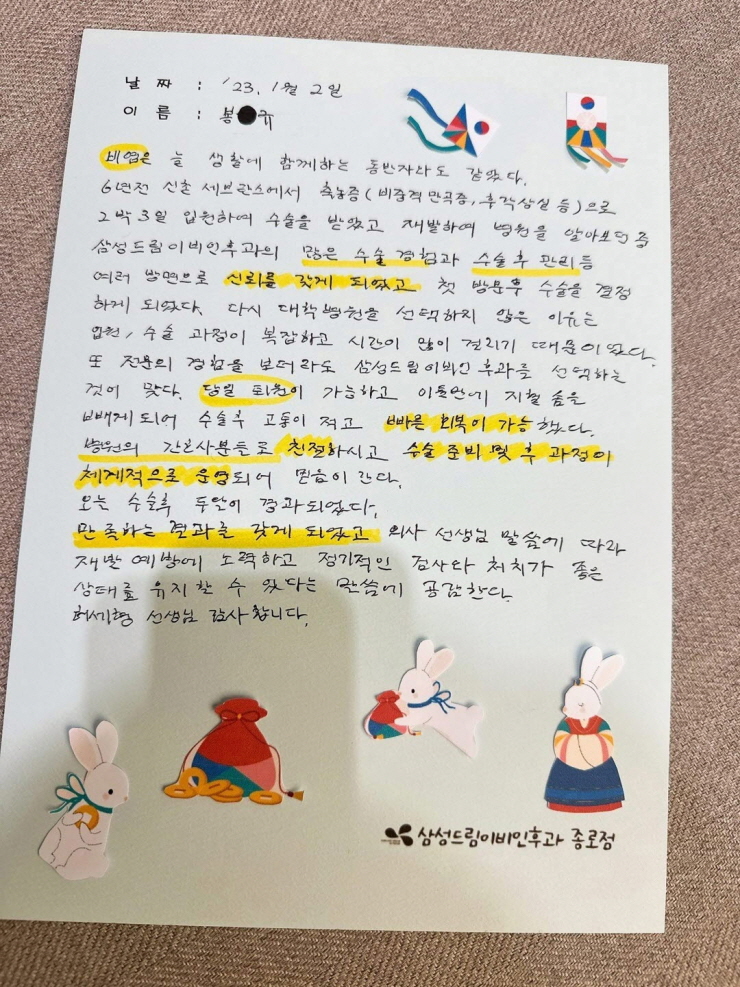 날 짜 : '23. 1월 2일
이 름 : 봉●규
비염은 늘 생활에 함께하는 동반자라도 같았다.
6년전 신촌 세브란스에서 축농증(비중격만곡증, 후각상실 등)으로
2박 3일 입원하여 수술을 받았고 재발하여 병원을 알아보던 중
삼성드림이비인후과의 많은 수술 경험과 수술후 관리등
여러 방면으로 신뢰를 갖게 되었고 첫 방문후 수술을 결정
하게 되었다. 다시 대학병원을 선택하지 않은 이유는
입원, 수술 과정이 복잡하고 시간이 많이 걸리기 때문이었다.
또 전문의 경험을 보더라도 삼성드림이비인후과를 선택하는
것이 맞다. 당일 퇴원이 가능하고 이틀만에 지혈 솜을
빼게되어 수술후 고통이 적고 빠른 회복이 가능했다.
병원의 간호사분들도 친절하시고 수술 준비 및 후 과정이
체계적으로 운영되어 믿음이 간다.
오늘 수술후 두달이 경과되었다.
만족하는 결과를 갖게 되었고 의사 선생님 말씀에 따라
재발 예방에 노력하고 정기적인 검사와 처치가 좋은
상태를 유지할 수 있다는 말씀에 공감한다.
허세형 선생님 감사합니다.
삼성드림이비인후과 종로점